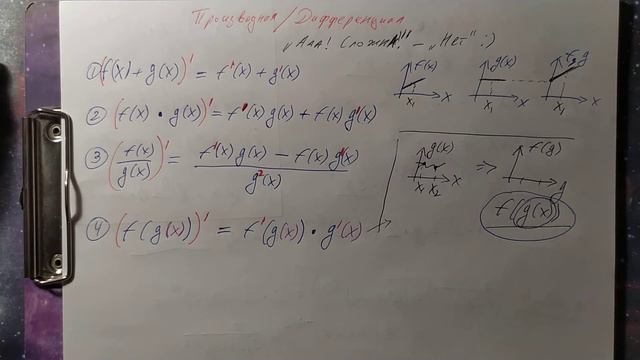 Производная / Дифференциал
„Ааа! Сложна!!!" – „Нет" :)
① (f(x) + g(x))' = f'(x) + g'(x)
② (f(x) • g(x))' = f'(x) g(x) + f(x) g'(x)
③ (f(x)/g(x))' = (f'(x) g(x) – f(x) g'(x))/g²(x)
④ (f(g(x)))' = f'(g(x)) • g'(x)
f(x)
x₁ x
g(x)
x₁ x
x₁ x
g(x)
x₁ x₂ x
=>
f(g)
g
f(g(x))